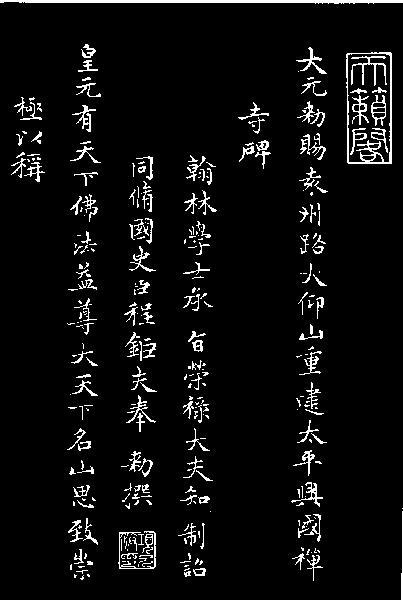 天籟閣
大元勅賜袁州路大仰山重建太平興國禪
寺碑
翰林學士承旨榮祿大夫知制詔
同脩國史臣程鉅夫奉勅撰
皇元有天下佛法益尊大天下名山思致崇
極以稱